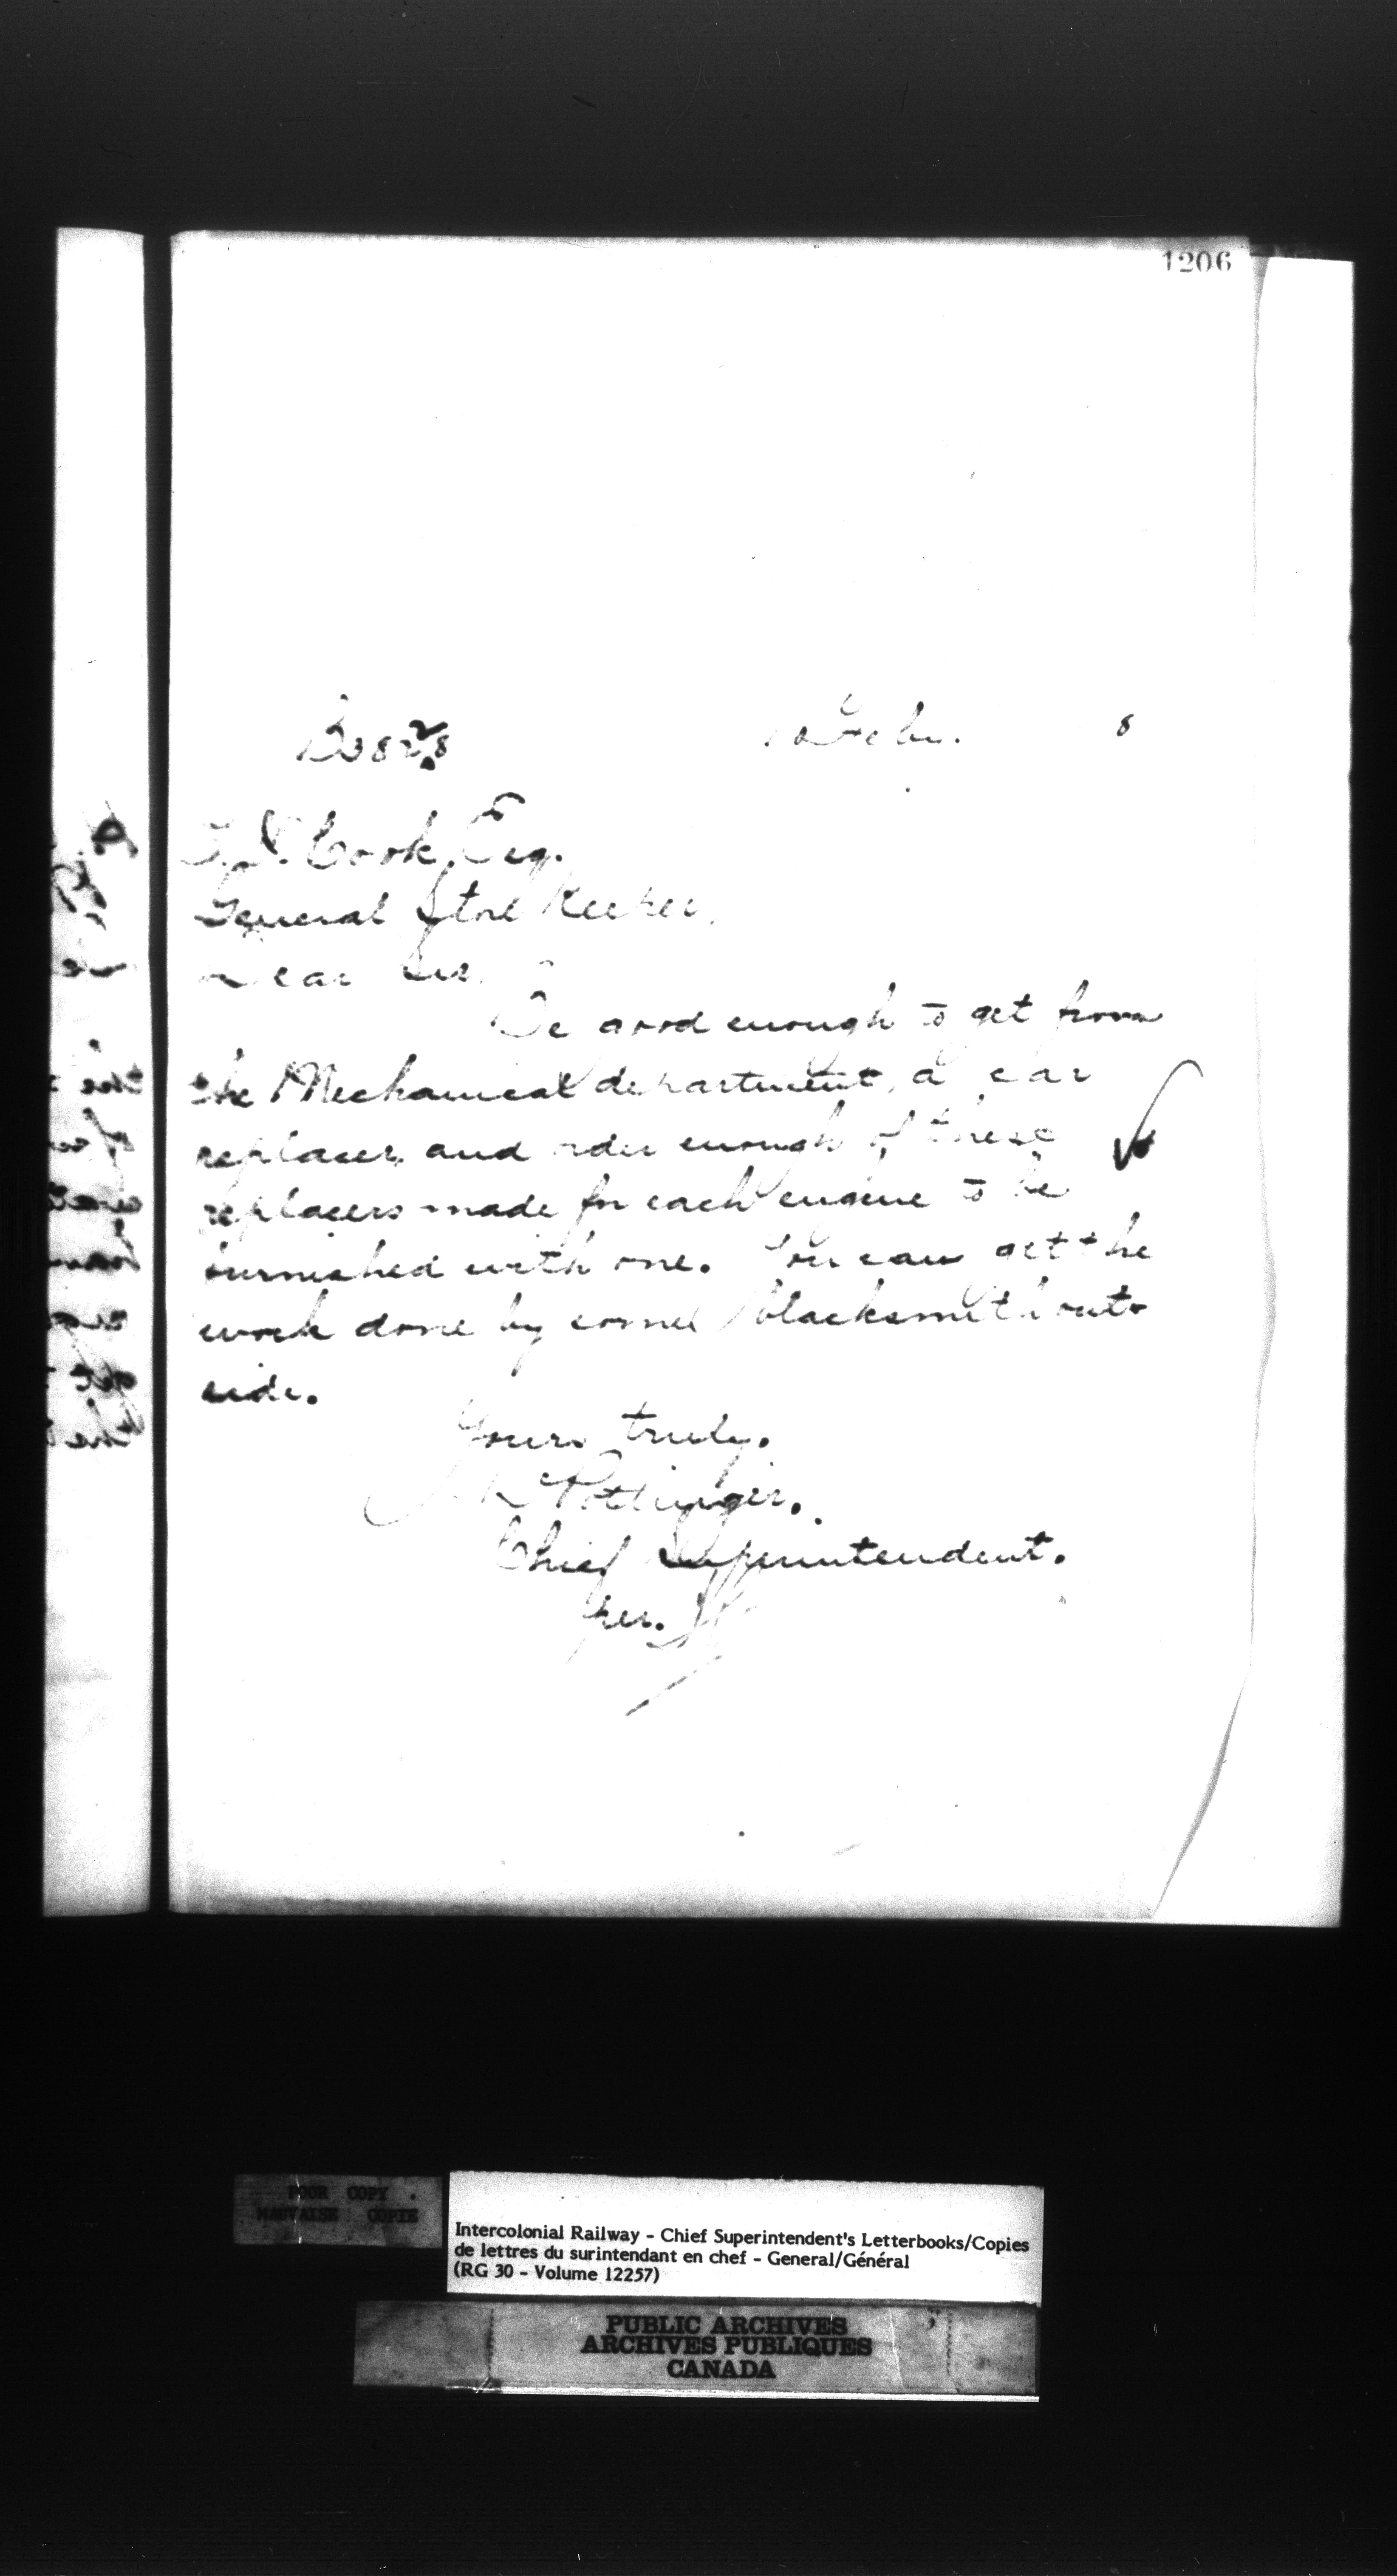 1206
Febu. 8
Cook, Esq.
General Store Keeper,
Dear Sir,
Be good enough to get from
the Mechanical department, a car
replacer, and order enough of these
replacers made for each engine to be
furnished with one. You can get the
work done by some blacksmith out-
side.
Yours truly.
Pottinger.
Chief Superintendent.
per.
POOR COPY
MAUVAISE COPIE
Intercolonial Railway - Chief Superintendent's Letterbooks/Copies
de lettres du surintendant en chef - General/Général
(RG 30 - Volume 12257)
PUBLIC ARCHIVES
ARCHIVES PUBLIQUES
CANADA